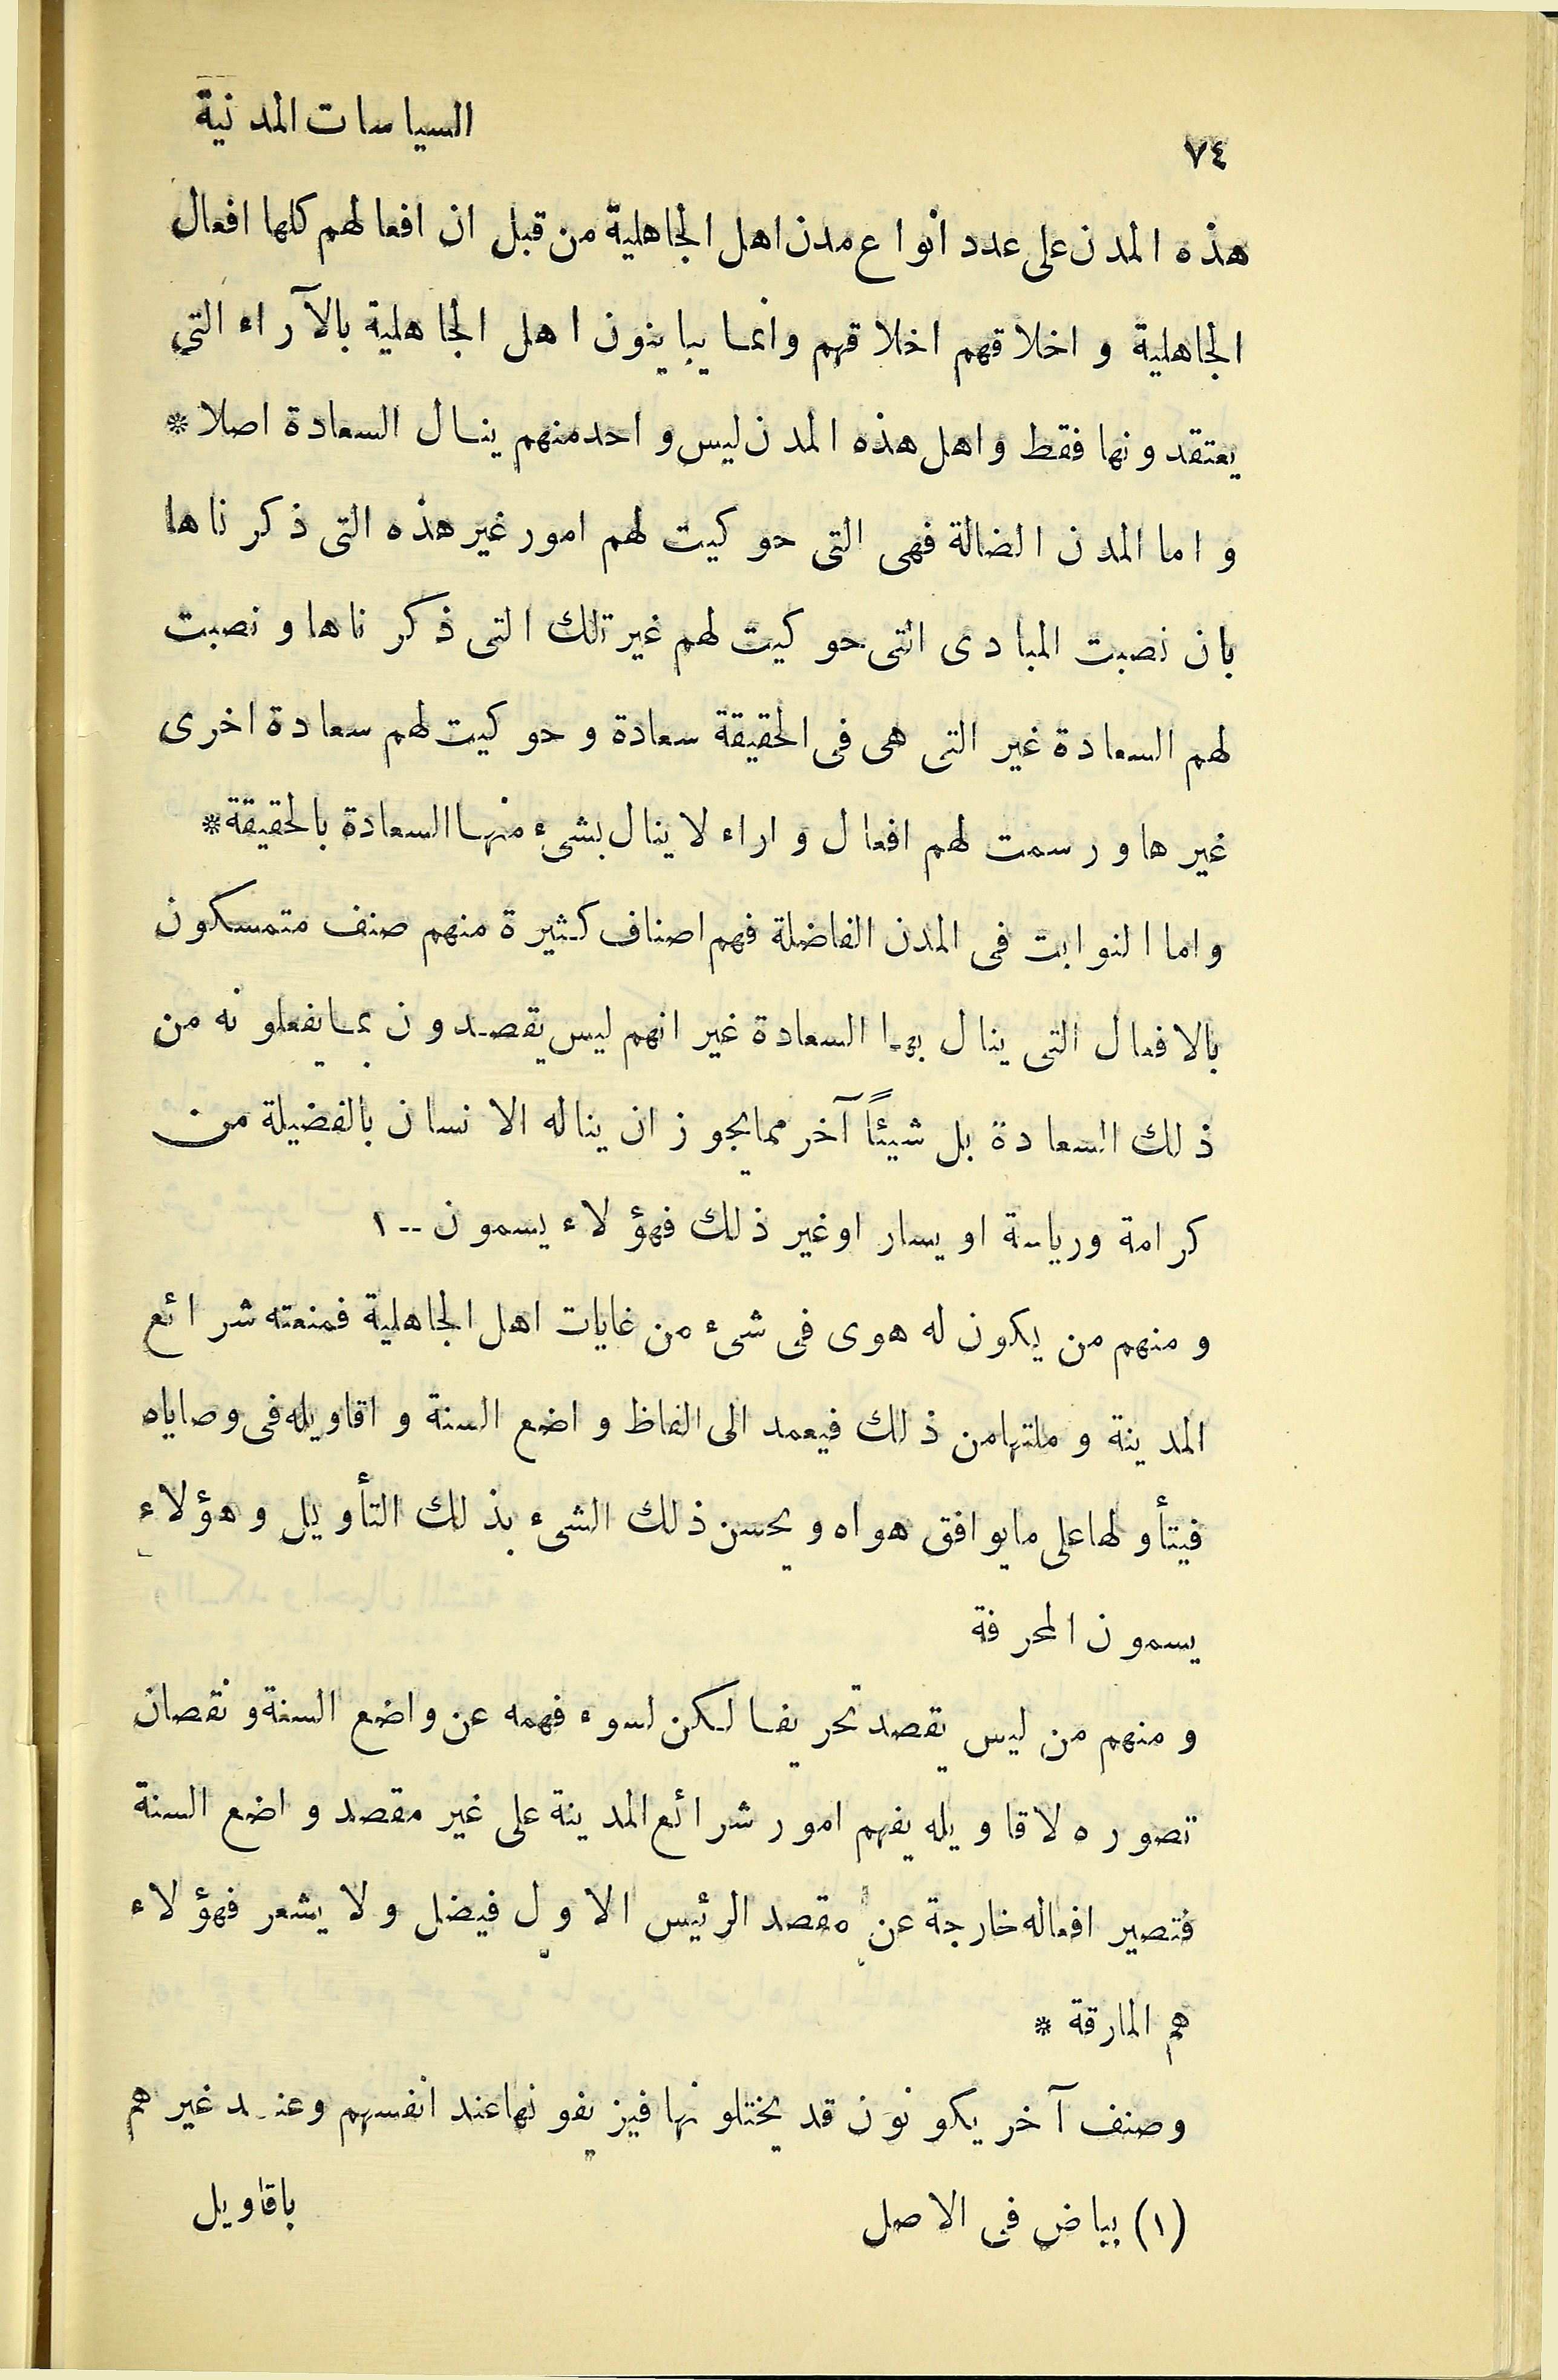 السياسات المدنية
٧٤
هذه المدن على عدد انواع مدن اهل الجاهلية من قبل ان افعالهم كلها افعال
الجاهلية و اخلاقهم اخلاقهم وانما يباينون اهل الجاهلية بالآراء التي
يعتقدونها فقط واهل هذه المدن ليس واحد منهم ينال السعادة اصلا *
و اما المدن الضالة فهى التى حوكيت لهم امور غير هذه التى ذكرناها
بان نصبت المبادى التى حوكيت لهم غير تلك التى ذكرناها و نصبت
لهم السعادة غير التى هى فى الحقيقة سعادة و حوكيت لهم سعادة اخرى
غيرها و رسمت لهم افعال و اراء لا ينال بشىء منها السعادة بالحقيقة *
واما النوابت فى المدن الفاضلة فهم اصناف كثيرة منهم صنف متمسكون
بالافعال التى ينال بها السعادة غير انهم ليس يقصدون بما يفعلونه من
ذلك السعادة بل شيئاً آخر مما يجوز ان يناله الانسان بالفضيلة من
كرامة ورياسة او يسار او غير ذلك فهؤلاء يسمون -- ١
و منهم من يكون له هوى فى شىء من غايات اهل الجاهلية فمنعته شرائع
المدينة و ملتها من ذلك فيعمد الى الفاظ واضع السنة و اقاويله فى وصاياه
فيتأولها على ما يوافق هواه و يحسن ذلك الشىء بذلك التأويل و هؤلاء
يسمون المحرفة
و منهم من ليس يقصد تحريفا لكن لسوء فهمه عن واضع السنة و نقصان
تصوره لاقاويله يفهم امور شرائع المدينة على غير مقصد واضع السنة
فتصير افعاله خارجة عن مقصد الرئيس الاول فيضل ولا يشعر فهؤلاء
هم المارقة *
وصنف آخر يكونون قد يختلونها فيزيفونها عند انفسهم وعند غيرهم
(١) بياض فى الاصل
باقاويل